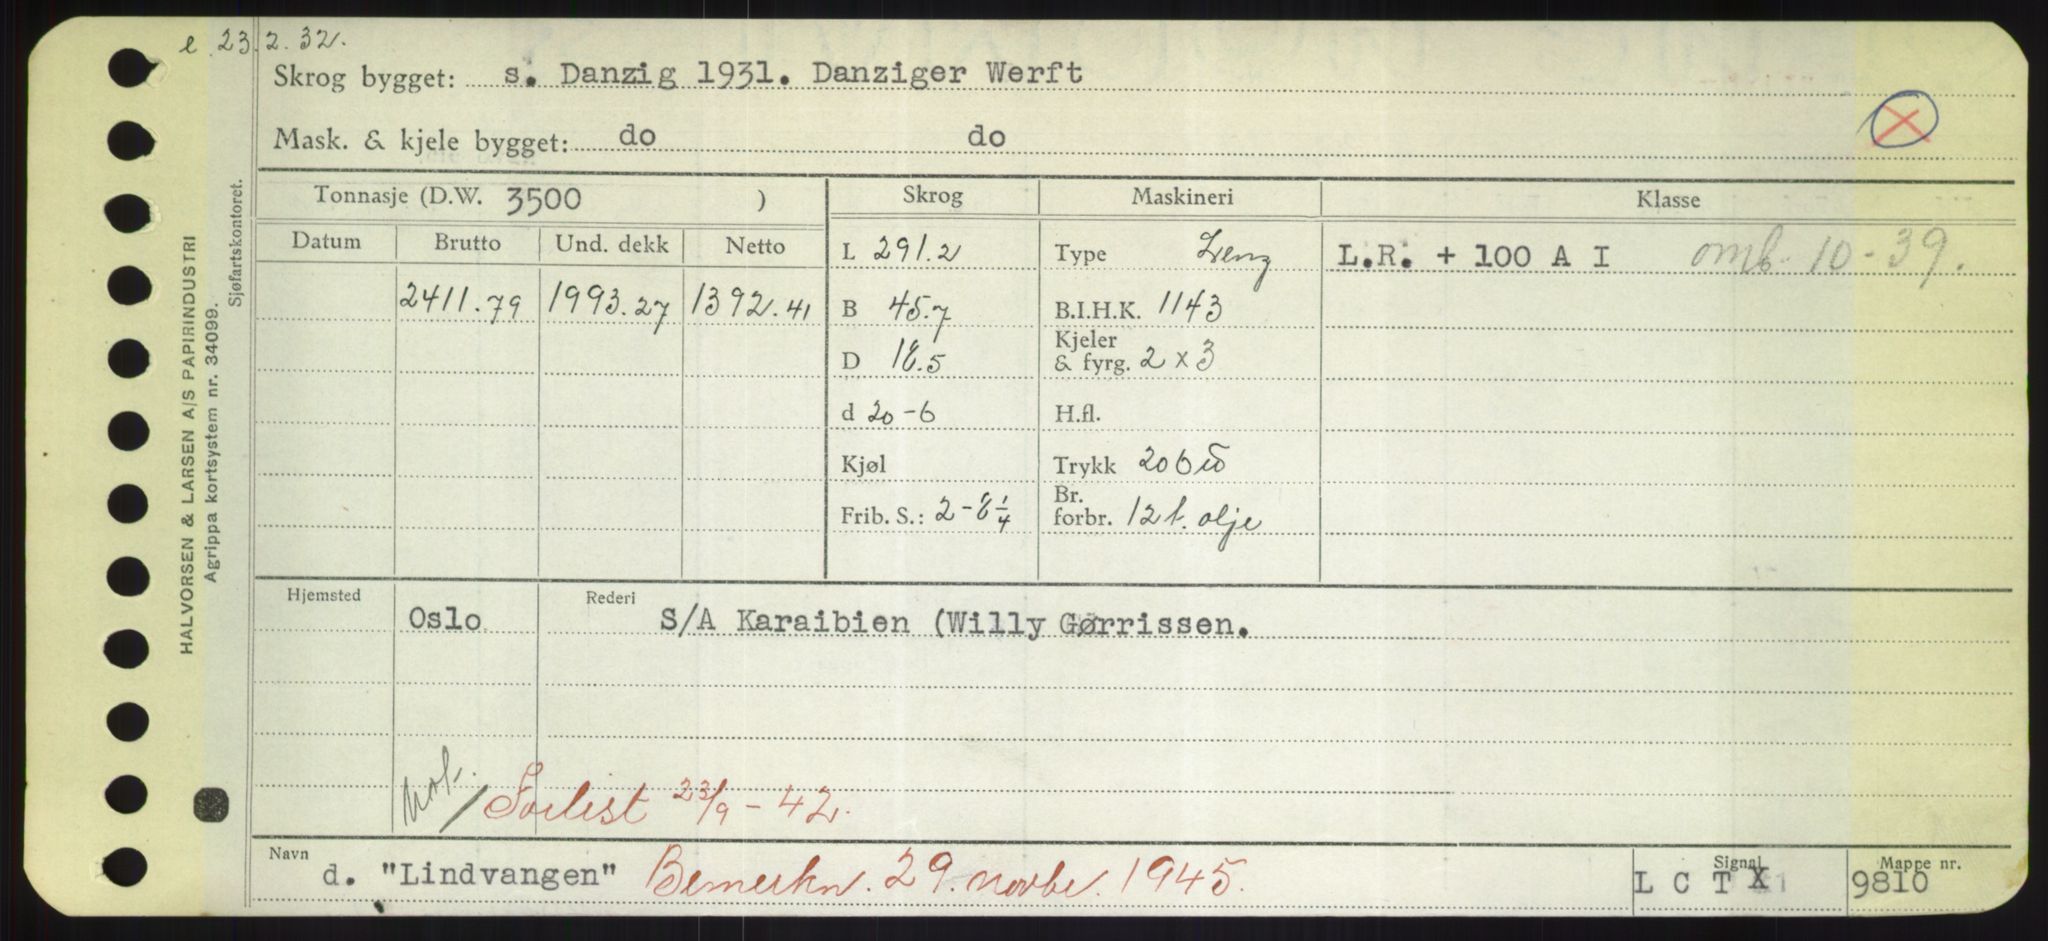 e 23.2.32.
Skrog bygget: s. Danzig 1931. Danziger Werft
Mask. & kjele bygget: do do
Tonnasje (D.W. 3500 ) Skrog Maskineri Klasse
Datum Brutto Und. dekk Netto L 291.2 Type Lenz L.R. + 100 A I omb. 10-39.
2411.79 1993.27 1392.41 B 45.7 B.I.H.K. 1143
D 18.5 Kjeler & fyrg. 2 x 3
d 20-6 H.fl.
Kjøl Trykk 206
Frib. S.: 2-8 1/4 Br. forbr. 12 t. olje
Hjemsted Oslo Rederi S/A Karaibien (Willy Gørrissen.
Forlist 23/9-42.
Navn d. "Lindvangen" Bemerkn. 29. novbr. 1945. Signal L C T X Mappe nr. 9810
HALVORSEN & LARSEN A/S PAPIRINDUSTRI
Agrippa kortsystem nr. 34099.
Sjøfartskontoret.